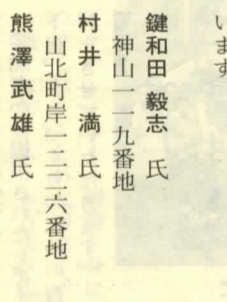 います
鍵和田 毅志 氏
神山一一九番地
村井 満 氏
山北町岸一二二六番地
熊澤武雄 氏